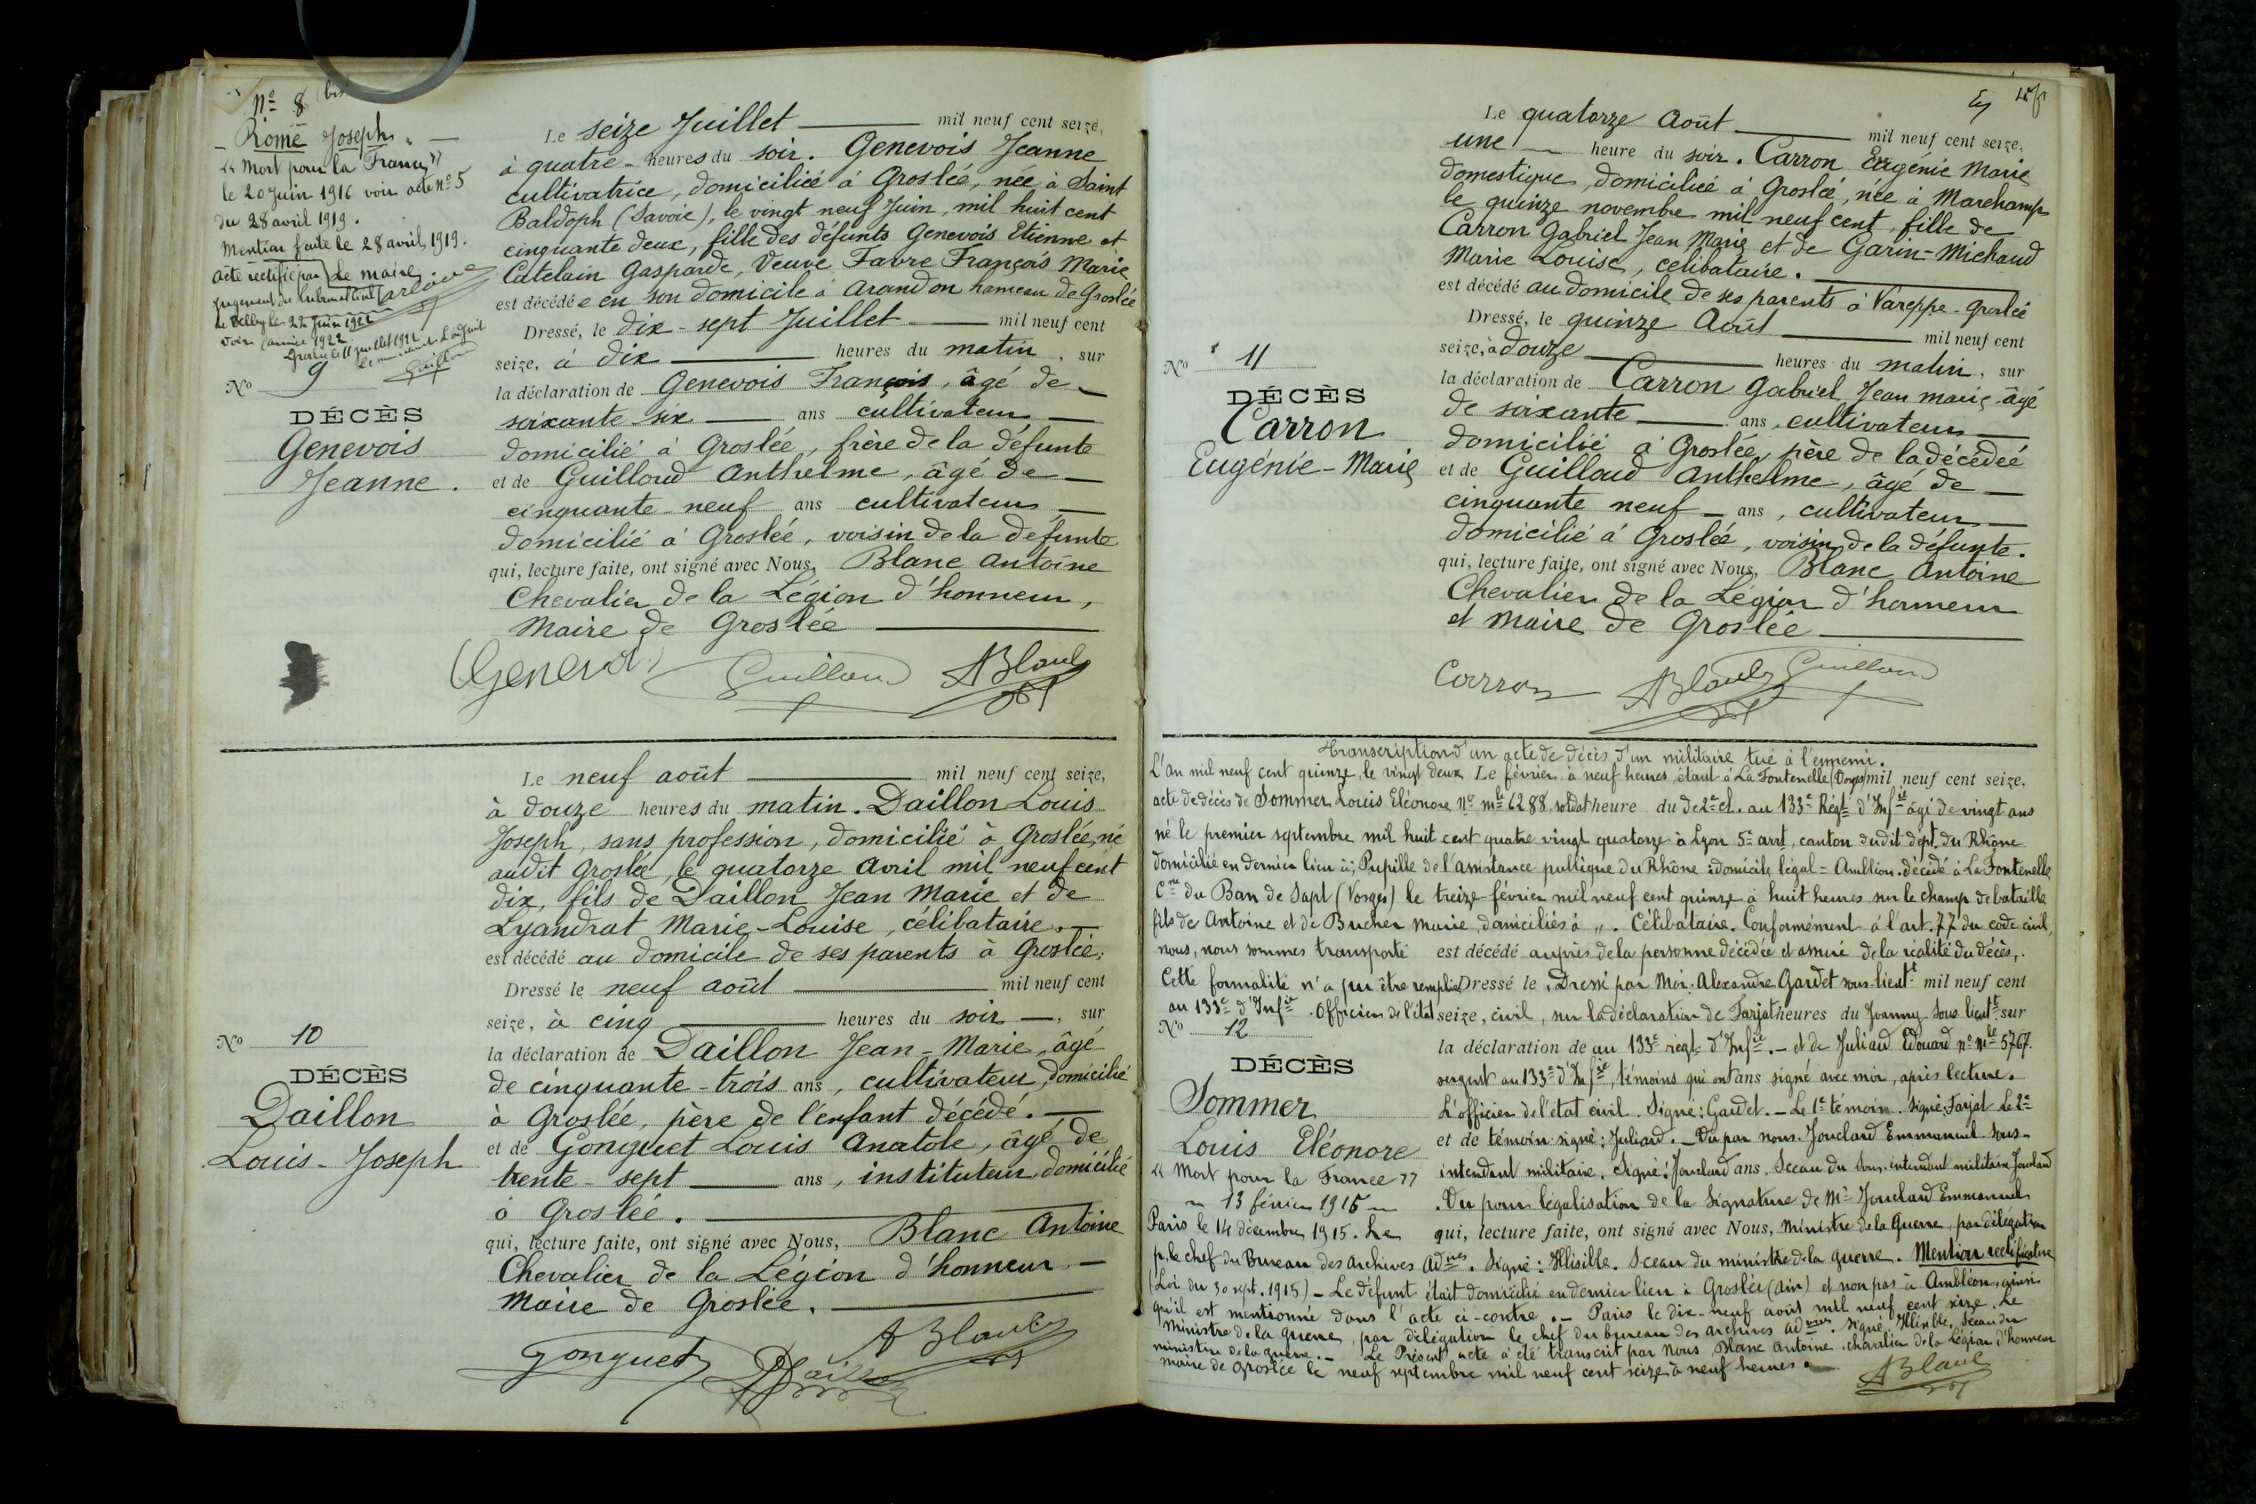 Nº 8 (bis
Rome Joseph.
"Mort pour la France"
le 20 Juin 1916 voir acte nº 5
du 28 avril 1919.
Mention faite le 28 avril, 1919.
Le maire
acte rectifié par
jugement du tribunal civil
de Belley le 22 Juin 1922
voir année 1922
Groslée le 11 juillet 1922
L'adjoint
Guillou
Nº 9
DÉCÈS
Genevois
Jeanne.
Le seize Juillet mil neuf cent seize,
à quatre heures du soir. Genevois Jeanne
cultivatrice, domiciliée à Groslée, née à Saint
Baldoph (Savoie), le vingt neuf Juin, mil huit cent
cinquante deux, fille des défunts Genevois Etienne et
Catelain Gasparde, Veuve Favre François Marie
est décédée en son domicile à Arandon hameau de Groslée
Dressé, le dix-sept Juillet mil neuf cent
seize, à dix heures du matin, sur
la déclaration de Genevois François, âgé de
soixante six ans cultivateur
domicilié à Groslée, frère de la défunte
et de Guilloud Anthelme, âgé de
cinquante neuf ans cultivateur
domicilié à Groslée, voisin de la défunte
qui, lecture faite, ont signé avec Nous, Blanc Antoine
Chevalier de la Légion d'honneur,
Maire de Groslée
Genevois Guilloud ABlanc
Nº 10
DÉCÈS
Daillon
Louis-Joseph
Le neuf août mil neuf cent seize,
à douze heures du matin. Daillon Louis
Joseph, sans profession, domicilié à Groslée, né
audit Groslée, le quatorze Avril mil neuf cent
dix, fils de Daillon Jean Marie et de
Lyandrat Marie-Louise, célibataire.
est décédé au domicile de ses parents à Groslée.
Dressé le neuf août mil neuf cent
seize, à cinq heures du soir, sur
la déclaration de Daillon Jean-Marie, âgé
de cinquante-trois ans, cultivateur, domicilié
à Groslée, père de l'enfant décédé.
et de Gonguet Louis Anatole, âgé de
trente-sept ans, instituteur domicilié
à Groslée.
qui, lecture faite, ont signé avec Nous, Blanc Antoine
Chevalier de la Légion d'honneur
Maire de Groslée.
Gonguet Daillon ABlanc
Nº 11
DÉCÈS
Carron
Eugénie-Marie
Le quatorze Août mil neuf cent seize,
une heure du soir. Carron Eugénie Marie
domestique, domiciliée à Groslée, née à Marchamp
le quinze novembre mil neuf cent, fille de
Carron Gabriel Jean Marie et de Garin-Michaud
Marie Louise, célibataire.
est décédé au domicile de ses parents à Vareppe-Groslée
Dressé, le quinze Août mil neuf cent
seize, à douze heures du matin, sur
la déclaration de Carron Gabriel Jean Marie âgé
de soixante ans, cultivateur
domicilié à Groslée, père de la décédée
et de Guilloud Anthelme, âgé de
cinquante neuf ans, cultivateur
domicilié à Groslée, voisin de la défunte.
qui, lecture faite, ont signé avec Nous, Blanc Antoine
Chevalier de la Légion d'honneur
et Maire de Groslée
Carron ABlanc Guilloud
Transcription d'un acte de décès d'un militaire tué à l'ennemi.
L'an mil neuf cent quinze, le vingt deux Le février à neuf heures étant à La Fontenelle (Vosges) mil neuf cent seize,
acte de décès de Sommer Louis Eléonore nº mle 6288, soldat heure du de 2e cl. au 133e Régt d'Infie âgé de vingt ans
né le premier septembre mil huit cent quatre vingt quatorze à Lyon 5e arrt, canton dudit dépt du Rhône
domicilié en dernier lieu à; Pupille de l'assistance publique du Rhône: domicile légal = Ambléon. décédé à La Fontenelle
Cne du Ban de Sapt (Vosges) le treize février mil neuf cent quinze à huit heures sur le champ de bataille
fils de Antoine et de Bucher Marie, domiciliés à ". Célibataire. Conformément à l'art. 77 du code civil,
nous, nous sommes transporté est décédé auprès de la personne décédée et assuré de la réalité du décès.
Cette formalité n'a pu être remplie Dressé le, Dressé par Moi: Alexandre Gardet sous-lieutt mil neuf cent
au 133e d'Infie. Officier de l'état seize, civil, sur la déclaration de Farjat heures du Joanny sous lieutt, sur
Nº 12
la déclaration de au 133e régt d'Infie. - et de Juliard Edouard nº mle 5767.
sergent au 133e d'Infie, témoins qui ont ans signé avec moi, après lecture.
DÉCÈS
Sommer
Louis Eléonore
"Mort pour la France"
13 février 1915
L'officier de l'état civil. Signé: Gardet. - Le 1er témoin. signé: Farjat Le 2e
et de témoin signé: Juliard. - Vu par nous. Jouclard Emmanuel sous-
intendant militaire. Signé: Jouclard ans. Sceau du sous-intendant militaire Jouclard
. Vu pour légalisation de la signature de Mr Jouclard Emmanuel
Paris le 14 décembre 1915. Le qui, lecture faite, ont signé avec Nous, Ministre de la Guerre, par délégation
p. le chef du Bureau des Archives Adves. Signé: Illisible. Sceau du ministre de la guerre. Mention rectificative
(Loi du 30 sept. 1915) - Le défunt était domicilié en dernier lieu à Groslée (Ain) et non pas à Ambléon, ainsi
qu'il est mentionné dans l'acte ci-contre. - Paris le dix-neuf août mil neuf cent seize. Le
Ministre de la guerre, par délégation le chef du bureau des archives adves. Signé Illisible, Sceau du
ministère de la guerre. - Le Présent acte a été transcrit par Nous Blanc Antoine chevalier de la Légion d'honneur
maire de Groslée le neuf septembre mil neuf cent seize à neuf heures.
ABlanc